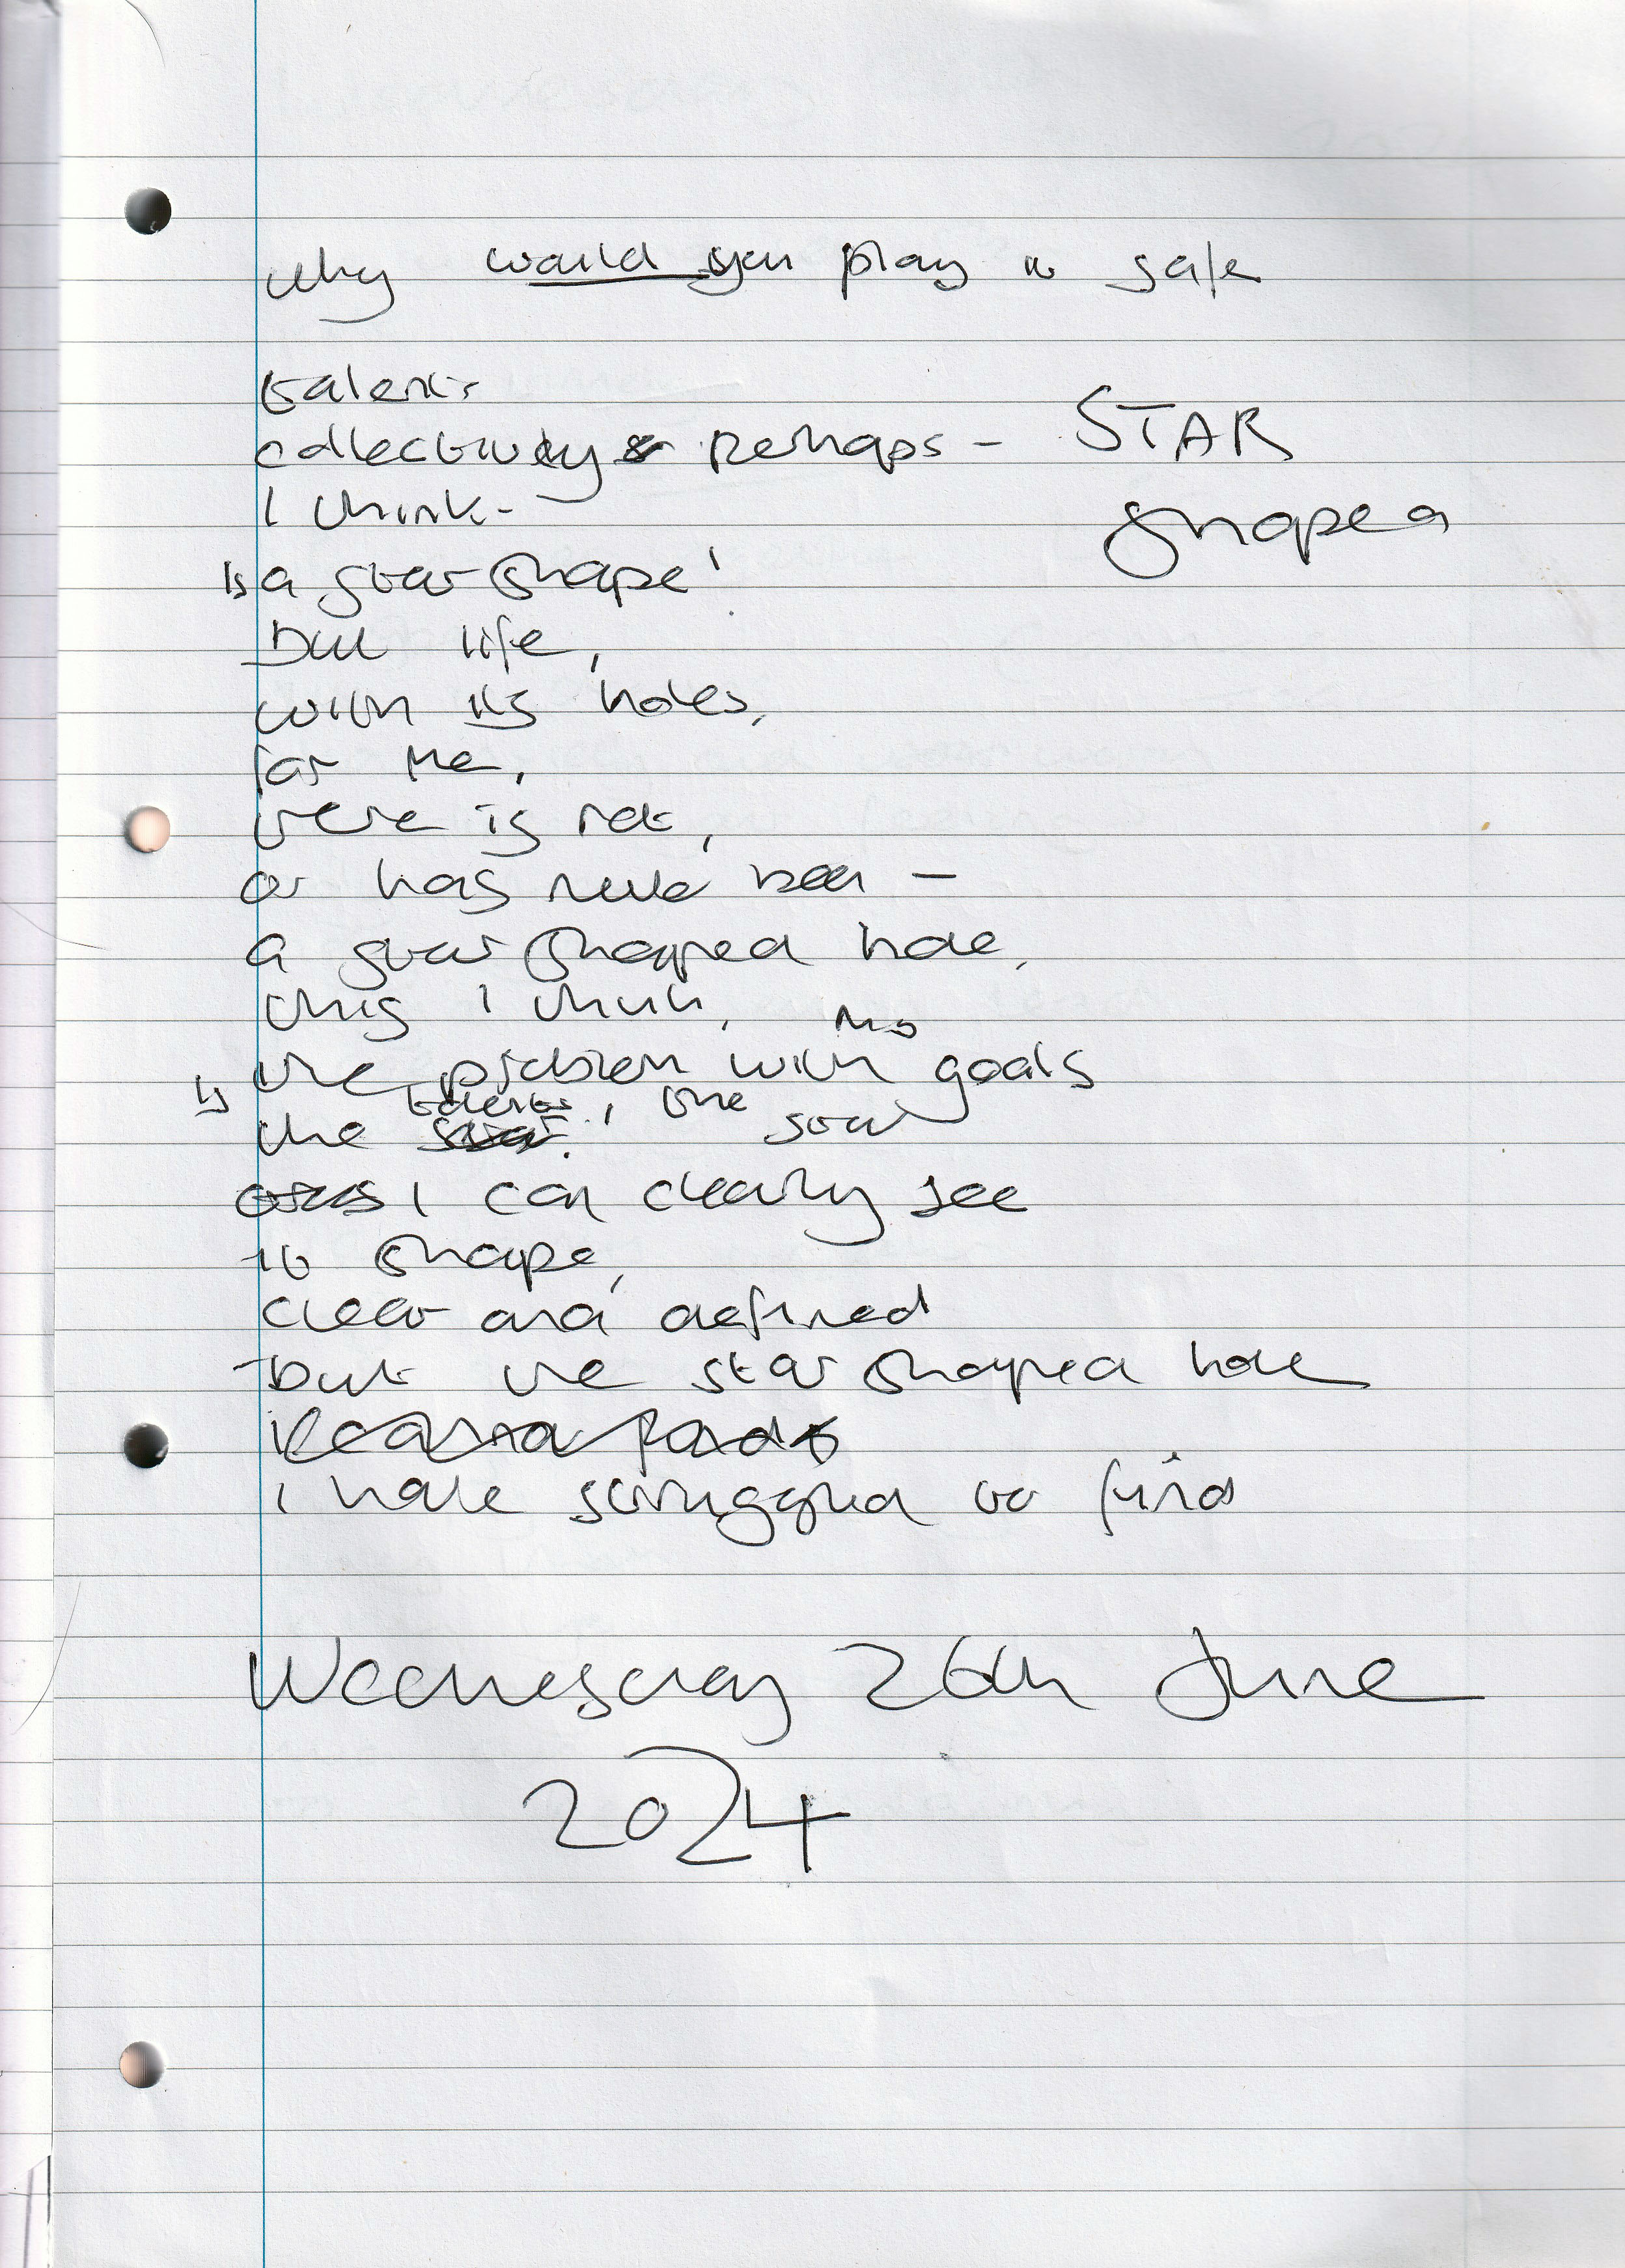 why would you play it safe
talents
collectively perhaps -
STAR
shaped
I think -
is a star shape
but life,
with its holes,
for me,
there is not,
or has never been -
a star shaped hole,
this I think,
the problem with my goals
is the talents, the star
I can clearly see
its shape,
clear and defined
but the star shaped hole
I have struggled to find
Wednesday 26th June
2024